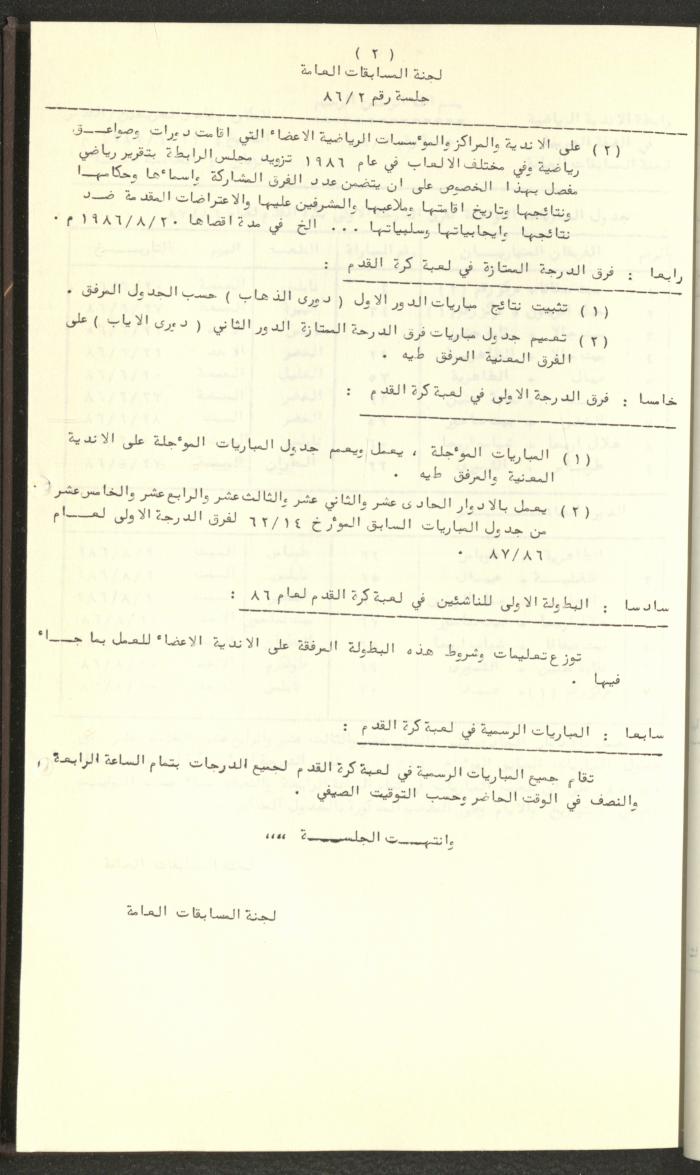 ( ٢ )
لجنة المسابقات العامة
جلسة رقم ٨٦/٢
( ٢ ) على الاندية والمراكز والمؤسسات الرياضية الاعضاء التي اقامت دورات وصواعـــق
رياضية وفي مختلف الالعاب في عام ١٩٨٦ تزويد مجلس الرابطة بتقرير رياضي
مفصل بهذا الخصوص على ان يتضمن عدد الفرق المشاركة واسمائها وحكامهــا
ونتائجها وتاريخ اقامتها وملاعبها والمشرفين عليها والاعتراضات المقدمة ضــد
نتائجها وايجابياتها وسلبياتها ... الخ في مدة اقصاها ١٩٨٦/٨/٢٠ م .
رابعا : فرق الدرجة الممتازة في لعبة كرة القدم :
( ١ ) تثبيت نتائج مباريات الدور الاول ( دورى الذهاب ) حسب الجدول المرفق .
( ٢ ) تعميم جدول مباريات فرق الدرجة الممتازة الدور الثاني ( دورى الاياب ) على
الفرق المعنية المرفق طيه .
خامسا : فرق الدرجة الاولى في لعبة كرة القدم :
( ١ ) المباريات الموءجلة ، يعمل ويعمم جدول المباريات الموءجلة على الاندية
المعنية والمرفق طيه .
( ٢ ) يعمل بالادوار الحادى عشر والثاني عشر والثالث عشر والرابع عشر والخامس عشر
من جدول المباريات السابق الموءرخ ٦٢/١٤ لفرق الدرجة الاولى لعــام
٨٧/٨٦ .
سادسا : البطولة الاولى للناشئين في لعبة كرة القدم لعام ٨٦ :
توزع تعليمات وشروط هذه البطولة المرفقة على الاندية الاعضاء للعمل بما جـــاء
فيها .
سابعا : المباريات الرسمية في لعبة كرة القدم :
تقام جميع المباريات الرسمية في لعبة كرة القدم لجميع الدرجات بتمام الساعة الرابعة
والنصف في الوقت الحاضر وحسب التوقيت الصيفي .
وانتهـــت الجلســـة ،،،،
لجنة المسابقات العامة